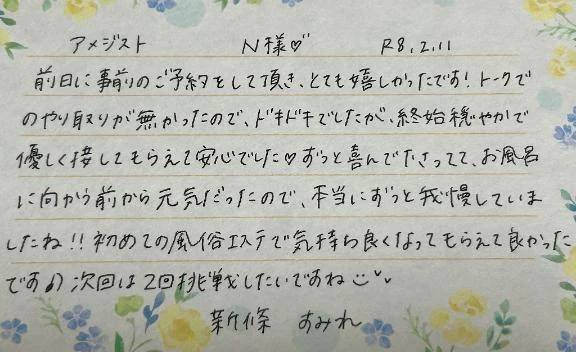 アメジスト N様♡ R8.2.11
前日に事前のご予約をして頂き、とても嬉しかったです！トークで
のやり取りが無かったので、ドキドキでしたが、終始穏やかで
優しく接してもらえて安心でした♡ずっと喜んでたさってて、お風呂
に向かう前から元気だったので、本当にずっと我慢していま
したね！！初めての風俗エステで気持ち良くなってもらえて良かった
です♪）次回は2回挑戦したいですね
新條 すみれ